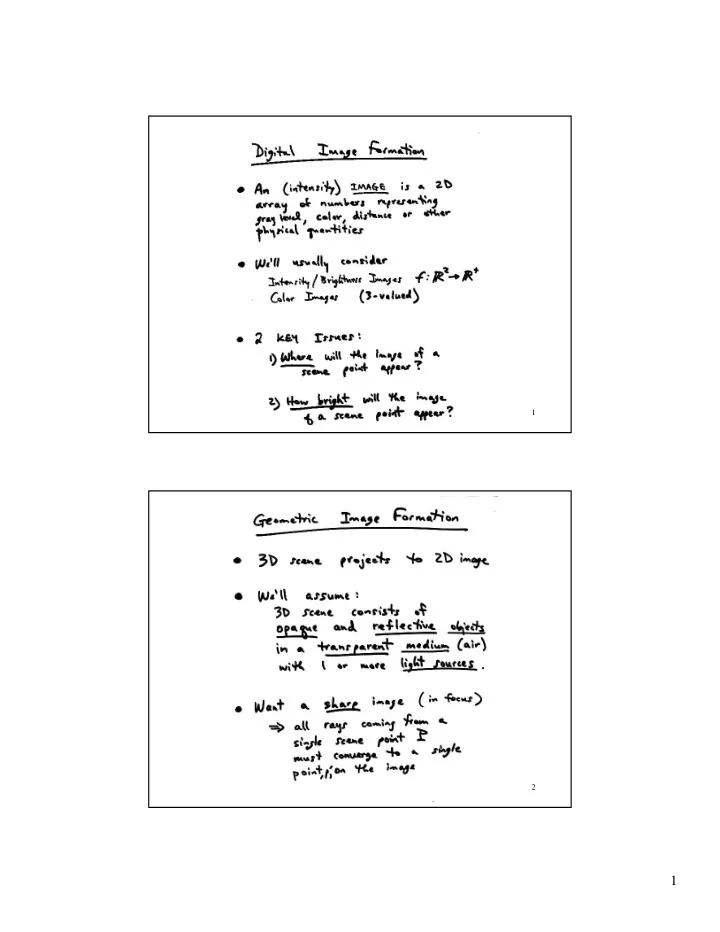 Digital Image Formation
• An (intensity) IMAGE is a 2D
array of numbers representing
gray level, color, distance or other
physical quantities
• We'll usually consider
Intensity/Brightness Images f: ℝ²→ℝ⁺
Color Images (3-valued)
• 2 KEY Issues:
1) Where will the image of a
scene point appear?
2) How bright will the image
of a scene point appear?
1
Geometric Image Formation
• 3D scene projects to 2D image
• We'll assume:
3D scene consists of
opaque and reflective objects
in a transparent medium (air)
with 1 or more light sources.
• Want a sharp image (in focus)
⇒ all rays coming from a
single scene point P
must converge to a single
point, p, on the image
2
1